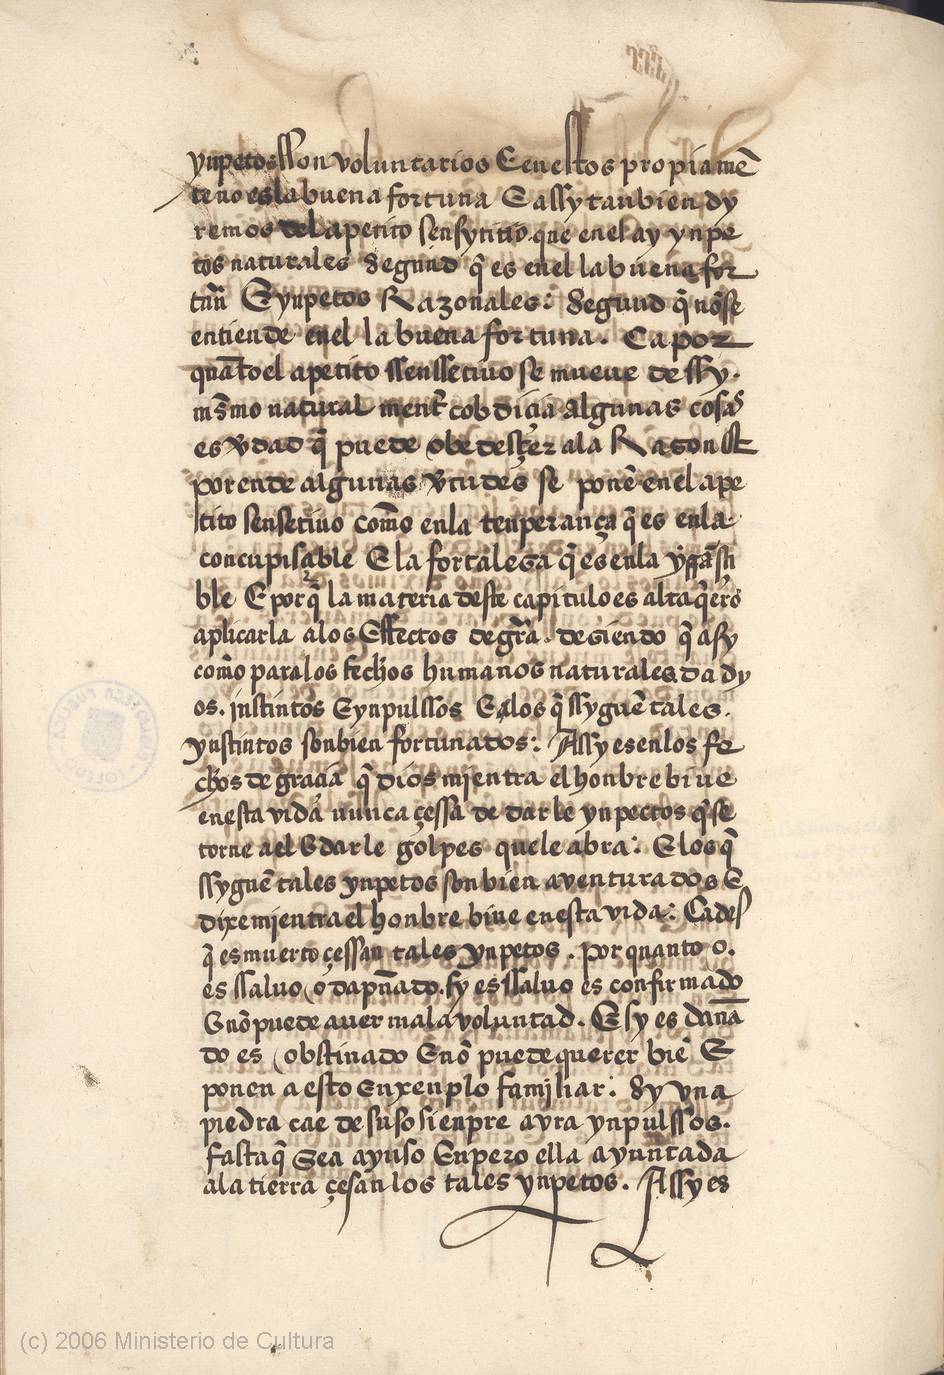 ynpetos sson voluntarios E en estos propiamẽ
te no es la buena fortuna E assy tanbien dy
remos del apetito sensytiuo que en el ay ynpe
tos naturales segund q̃ es en el la buena for
tuña E ynpetos Razonales: segund q̃ nõ se
entiende en el la buena fortuna. Ca por
quãto el apetito ssenssetiuo se mueue de ssy.
mẽsmo natural ment̃ cobdiçia algunas cosas
es ṽdad q̃ puede obedesçer ala Razon Et
por ende algunas ṽtudes se ponẽ en el ape
tito sensetiuo com̃o en la tenperança q̃ es en la
concupisçable E la fortaleza q̃ es en la yrãsci
ble E por q̃ la materia deste capitulo es alta q̃ero
aplicarla alos Effectos de gr̃a. deziendo q̃ asy
com̃o para los fechos humanos naturales da dy
os. instintos E ynpulssos E alos q̃ ssyguẽ tales.
ynstintos son bien fortunados: Assy es en los fe
chos de graçia q̃ dios mientra el honbre biue
en esta vida nunca çessa de darle ynpectos q̃ se
torne a el E darle golpes que le abra: E los q̃
ssyguẽ tales ynpetos son bien aventurados E
dixe mientra el honbre biue en esta vida: Ca des
q̃ es muerto çessan tales ynpetos. por quanto o.
es ssaluo o dapñado. sy es ssaluo es confirmado
E nõ puede auer mala voluntad. E sy es danã
do es obstinado E nõ puede querer biẽ E
ponen a esto Enxenplo familiar: sy vna
piedra cae de suso sienpre avra ynpulssos.
fasta q̃ sea ayuso Enpero ella ayuntada
ala tierra çesan los tales ynpetos. Assy es
(c) 2006 Ministerio de Cultura